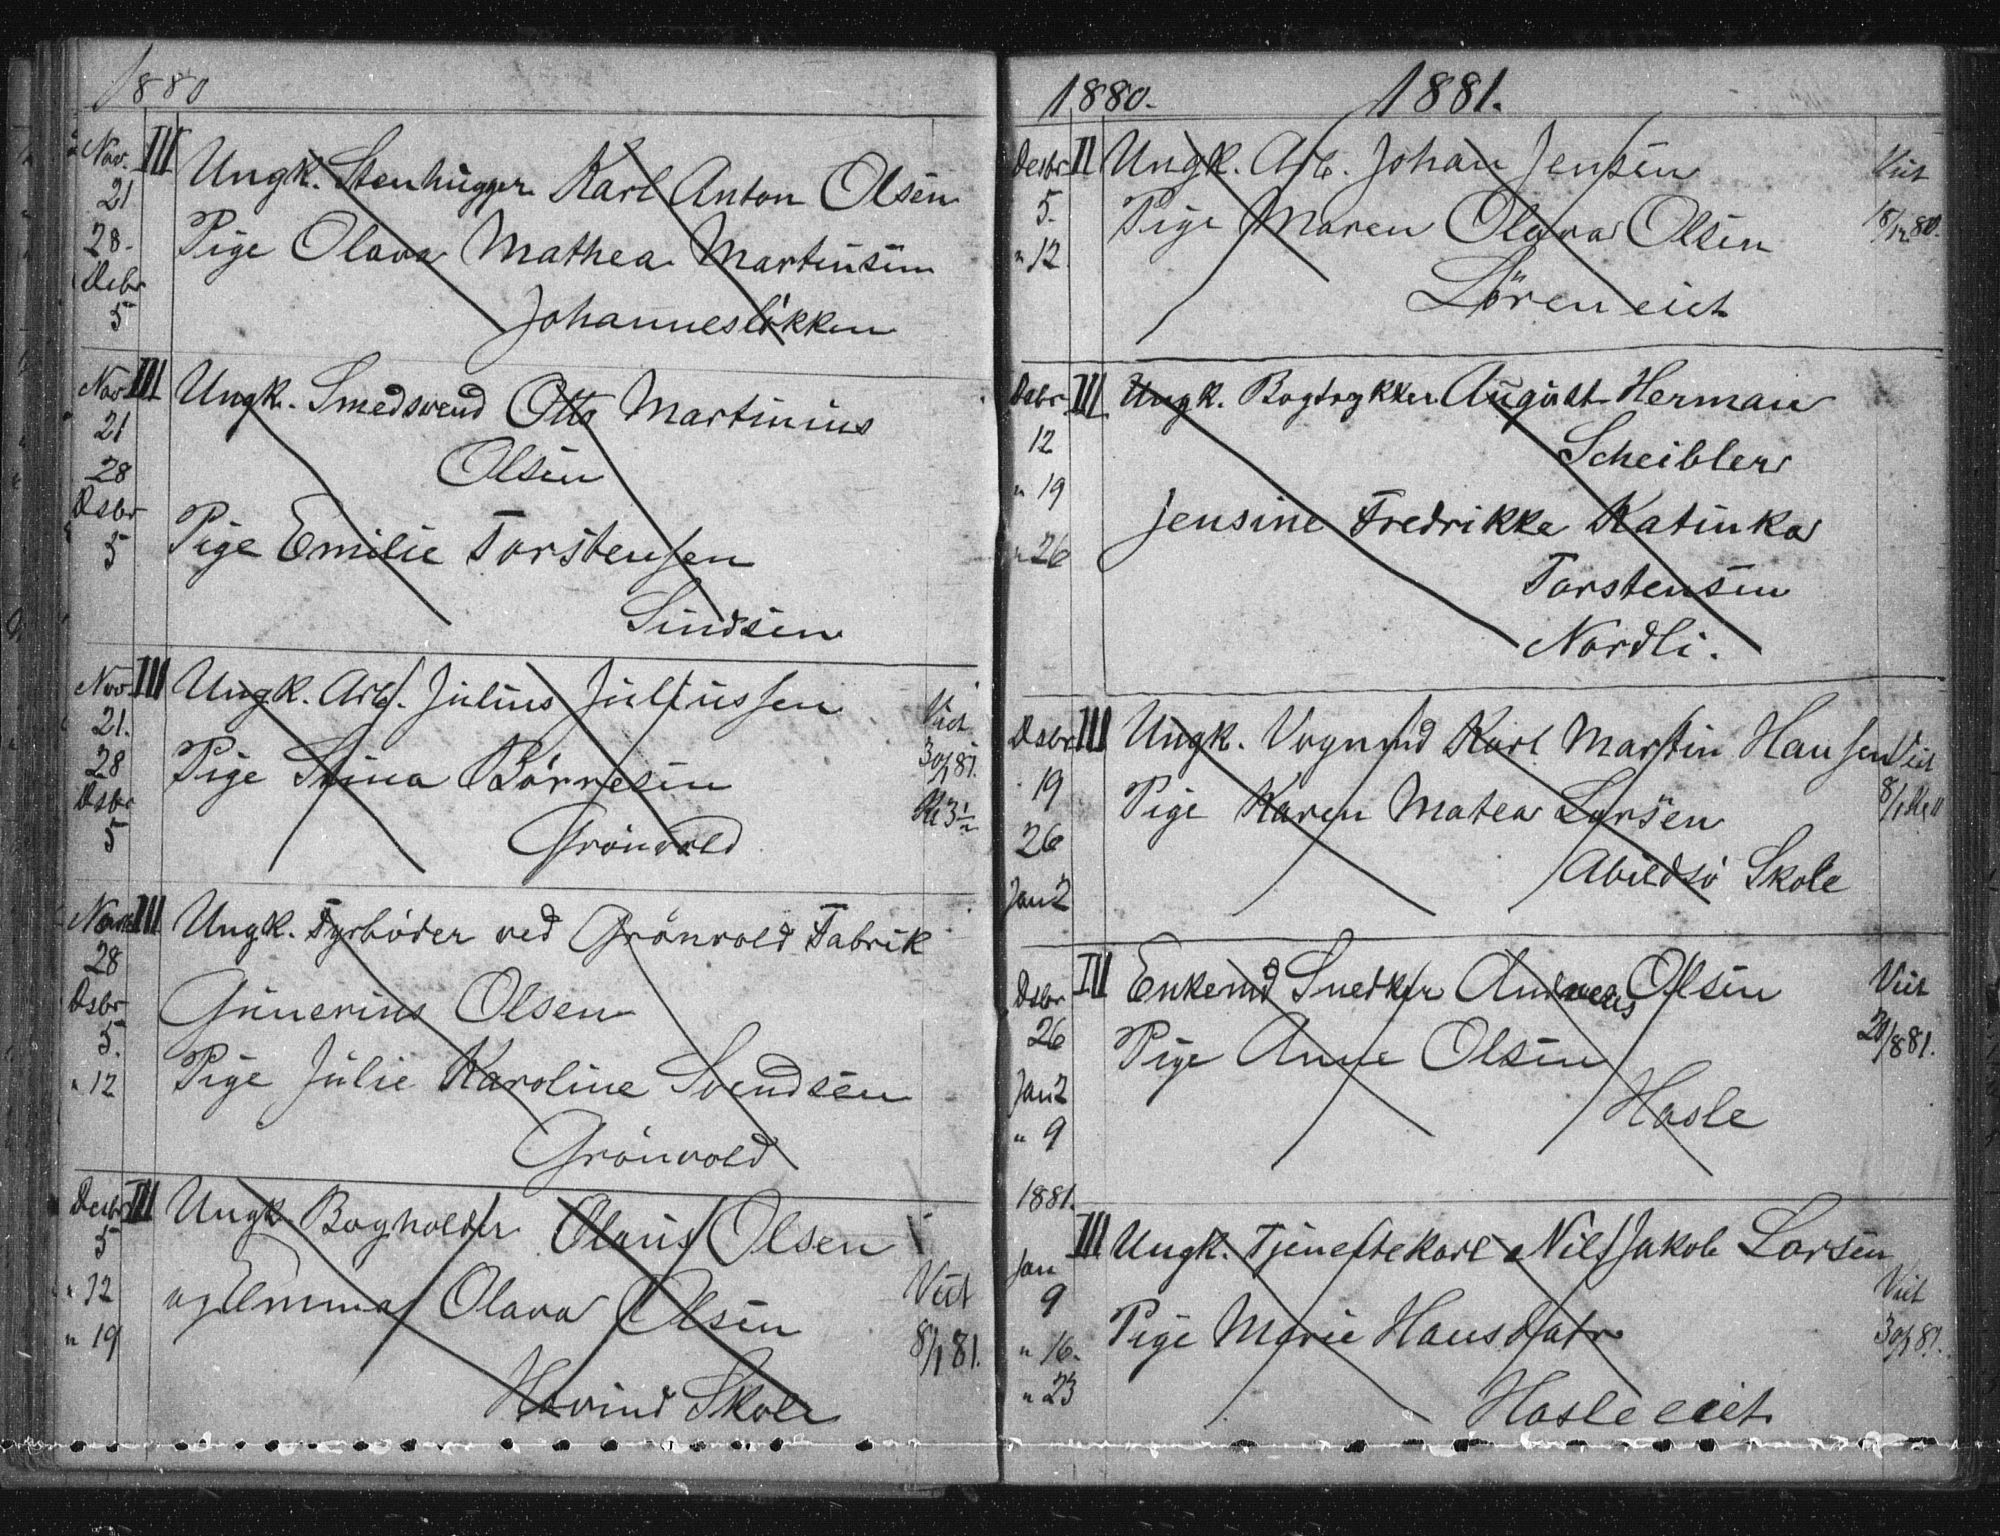 1880
Nov. III Ungk. Stenhugger Karl Anton Olsen
21
28. Pige Olava Mathea Martinsen
Debr
5 Johannesløkken
Nov III Ungk. Smedsvend Otto Martinius
21
28 Olsen
Dsbr
5 Pige Emilie Torstensen
Sindsen
Nov. III Ungk. Arb. Julius Juliussen Viet
21.
28 Pige Stina Börresen 30/1 81.
Dsbr
5 Grönvold
III Ungk. Fyrböder ved Grönvold Fabrik
28
Dsbr Gunerius Olsen
5.
" 12 Pige Julie Karoline Svendsen
Grönvold
Desbr III Ungk. Bogholder Olaus Olsen
5
" 12 og Emma Olava Olsen Viet
" 19 8/1 81.
Hovind Skole
1880. 1881.
Desbr II Ungk. Arb. Johan Jensen Viet
5. Pige Maren Olava Olsen 18/12 80.
" 12
Lören eiet
Dsbr III Ungk. Bogtrykker August Herman
12 Scheibler
" 19
Jensine Fredrikke Katinka
" 26
Torstensen
Nordli.
Dsbr III Ungk. Vognmd Karl Martin Hansen Viet
19 Pige Karen Matea Larsen 8/1
26
Jan 2 Abildsö Skole
Dsbr III Enkemd Snedker Andreas Olsen Viet
26 Pige Anne Olsen 20/8 81.
Jan 2
" 9 Hasle
1881.
Jan III Ungk. Tjenestekarl Nils Jakob Larsen
9 Viet
" 16. Pige Marie Hansdatr 30/1 81.
" 23 Hasle eiet